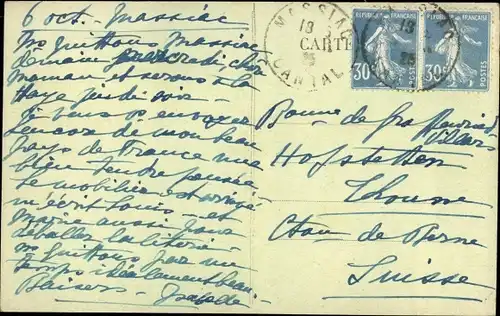 6 oct. Massiac
ns quittons Massiac
demain mercredi cher
maman et serons à la
Haye jeudi soir
Je vous envoie
encore de mon beau
pays de France une
bien tendre pensée
le mobilier est arrivé
m'écrit Louis et
Marie aussi pour
déballer la literie
ns quittons par un
temps idéalement beau.
Baisers Isabelle
MASSIAC
CANTAL
CARTE
REPUBLIQUE FRANÇAISE
30c
POSTES
REPUBLIQUE FRANÇAISE
30c
POSTES
Bonne de Graffenried
Villars
Hofstetten
Thoune
Cton de Berne
Suisse